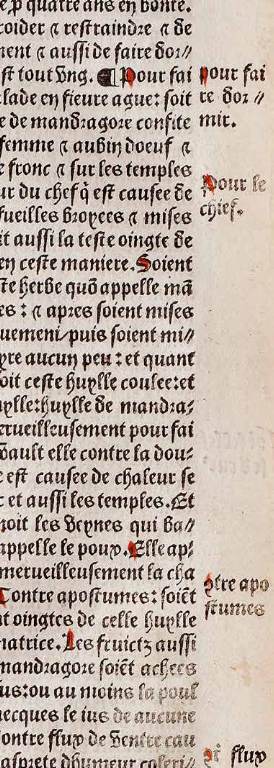 e p quatre ans en bonte.
roider ⁊ restraindre ⁊ de
ment ⁊ aussi de faire dor//
st tout vng. ¶ Pour fai
lade en fieure ague: soit
e de mandragore confite
femme ⁊ aubin doeuf ⁊
e fronc ⁊ sur les temples
ur du chef q̄ est causee de
fueilles broyees ⁊ mises
it aussi la teste oingte de
en ceste maniere. Soient
ste herbe quō appelle mā
es: ⁊ apres soient mises
uement/puis soient mi//
yre aucun peu: et quant
oit ceste huylle coulee:et
uylle:huylle de mandra:
erueilleusement pour fai
vault elle contre la dou:
e est causee de chaleur se
t et aussi les temples. Et
noit les veynes qui ba//
appelle le poux. Elle ap:
merueilleusement la cha
Contre apostumes: soiēt
t oingtes de celle huylle
matrice. Les fruictz aussi
mandragore soiēt achees
us:ou au moins la poul
uecques le ius de aucune
ontre flux de ventre cau
aspreté dhumeur coleri//
Pour fai
re dor //
mir.
Pour le
chief.
ōtre apo
stumes
flux